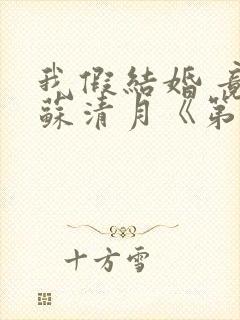 我假結婚
蘇清月《第
十方雪